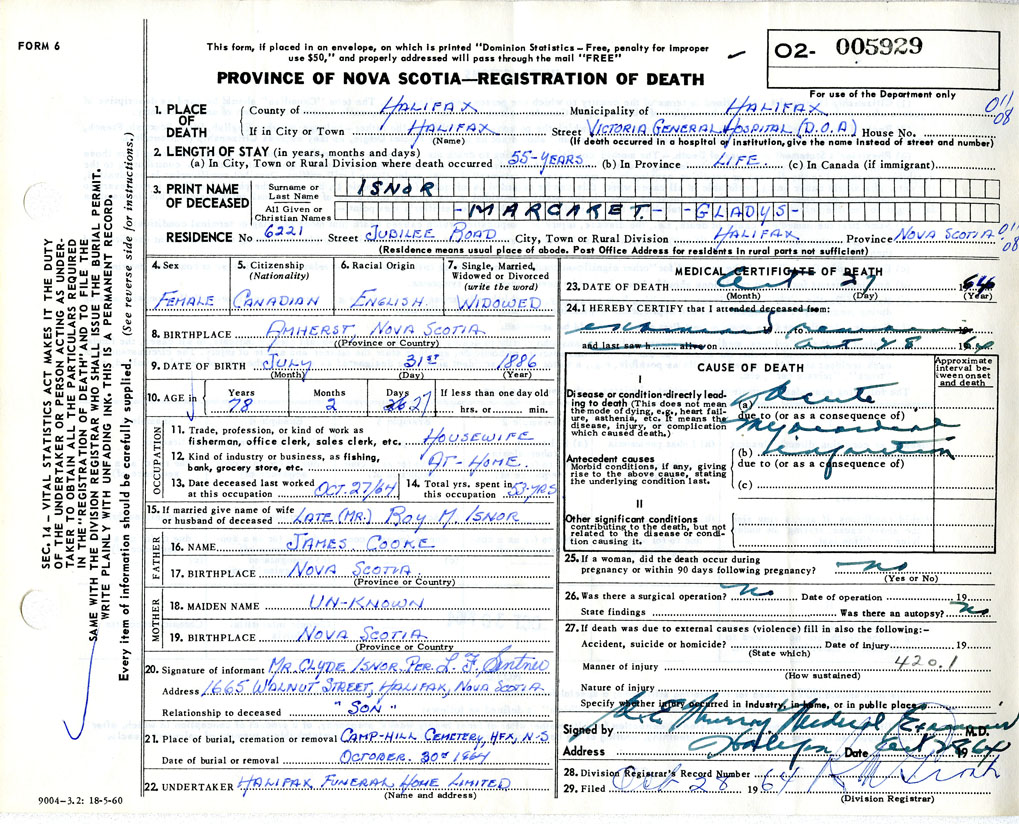 FORM 6
This form, if placed in an envelope, on which is printed "Dominion Statistics – Free, penalty for improper
use $50," and properly addressed will pass through the mail "FREE"
PROVINCE OF NOVA SCOTIA—REGISTRATION OF DEATH
02- 005929
For use of the Department only
SEC. 14 – VITAL STATISTICS ACT MAKES IT THE DUTY
OF THE UNDERTAKER OR PERSON ACTING AS UNDER-
TAKER TO OBTAIN ALL THE PARTICULARS REQUIRED
IN THE "REGISTRATION OF DEATH" AND TO FILE THE
SAME WITH THE DIVISION REGISTRAR WHO SHALL ISSUE THE BURIAL PERMIT.
WRITE PLAINLY WITH UNFADING INK. THIS IS A PERMANENT RECORD.
Every item of information should be carefully supplied. (See reverse side for instructions.)
1. PLACE OF DEATH
County of HALIFAX Municipality of HALIFAX 011 08
If in City or Town HALIFAX Street VICTORIA GENERAL HOSPITAL (D.O.A) House No.
(Name) (If death occurred in a hospital or institution, give the name instead of street and number)
2. LENGTH OF STAY (in years, months and days)
(a) In City, Town or Rural Division where death occurred 55-YEARS (b) In Province LIFE (c) In Canada (if immigrant)
3. PRINT NAME OF DECEASED
Surname or Last Name ISNOR
All Given or Christian Names -MARGARET- -GLADYS-
RESIDENCE No 6221 Street JUBILEE ROAD City, Town or Rural Division HALIFAX Province NOVA SCOTIA 011 08
(Residence means usual place of abode. Post Office Address for residents in rural parts not sufficient)
4. Sex FEMALE
5. Citizenship (Nationality) CANADIAN
6. Racial Origin ENGLISH
7. Single, Married, Widowed or Divorced (write the word) WIDOWED
8. BIRTHPLACE AMHERST, NOVA SCOTIA
((Province or Country)
9. DATE OF BIRTH JULY 31ST 1886
(Month) (Day) (Year)
10. AGE in Years 78 Months 2 Days 27 If less than one day old hrs. or min.
OCCUPATION
11. Trade, profession, or kind of work as
fisherman, office clerk, sales clerk, etc. HOUSEWIFE
12. Kind of industry or business, as fishing,
bank, grocery store, etc. AT-HOME.
13. Date deceased last worked
at this occupation OCT. 27/64
14. Total yrs. spent in
this occupation 53-YRS
15. If married give name of wife
or husband of deceased LATE (MR.) ROY M. ISNOR
FATHER
16. NAME JAMES COOKE
17. BIRTHPLACE NOVA SCOTIA.
(Province or Country)
MOTHER
18. MAIDEN NAME UN-KNOWN
19. BIRTHPLACE NOVA SCOTIA
(Province or Country)
20. Signature of informant MR. CLYDE ISNOR PER. L. F.
Address 1665 WALNUT STREET, HALIFAX, NOVA SCOTIA
Relationship to deceased "SON"
21. Place of burial, cremation or removal CAMP-HILL CEMETERY, HFX, N-S
Date of burial or removal OCTOBER. 30th 1964
22. UNDERTAKER HALIFAX FUNERAL HOME LIMITED
(Name and address)
9004–3.2: 18-5-60
MEDICAL CERTIFICATE OF DEATH
23. DATE OF DEATH Oct 27 1964
(Month) (Day) (Year)
24. I HEREBY CERTIFY that I attended deceased from:
examined remains to 19
and last saw h alive on Oct 28 1964
CAUSE OF DEATH
Approximate interval between onset and death
I
Disease or condition directly leading to death (This does not mean the mode of dying, e.g., heart failure, asthenia, etc. It means the disease, injury, or complication which caused death.)
(a) Acute
due to (or as a consequence of)
myocardial
Antecedent causes
Morbid conditions, if any, giving rise to the above cause, stating the underlying condition last.
(b) infarction
due to (or as a consequence of)
(c)
II
Other significant conditions
contributing to the death, but not related to the disease or condition causing it.
25. If a woman, did the death occur during
pregnancy or within 90 days following pregnancy? no
(Yes or No)
26. Was there a surgical operation? no Date of operation 19
State findings Was there an autopsy? no
27. If death was due to external causes (violence) fill in also the following:–
Accident, suicide or homicide? Date of injury 19
(State which)
Manner of injury 420.1
(How sustained)
Nature of injury
Specify whether injury occurred in Industry, in home, or in public place
Signed by Murray Medical Examiner M.D.
Address Halifax Date Oct 28 1964
28. Division Registrar's Record Number
29. Filed Oct 28 1964
(Division Registrar)